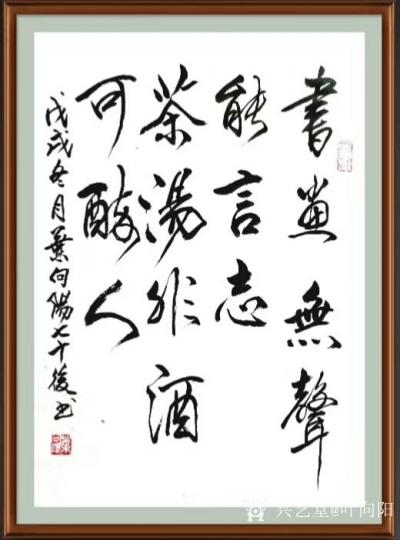 書畫無聲
能言志
茶湯非酒
可醉人
戊戌冬月葉向陽七十後书
兴艺堂@叶向阳